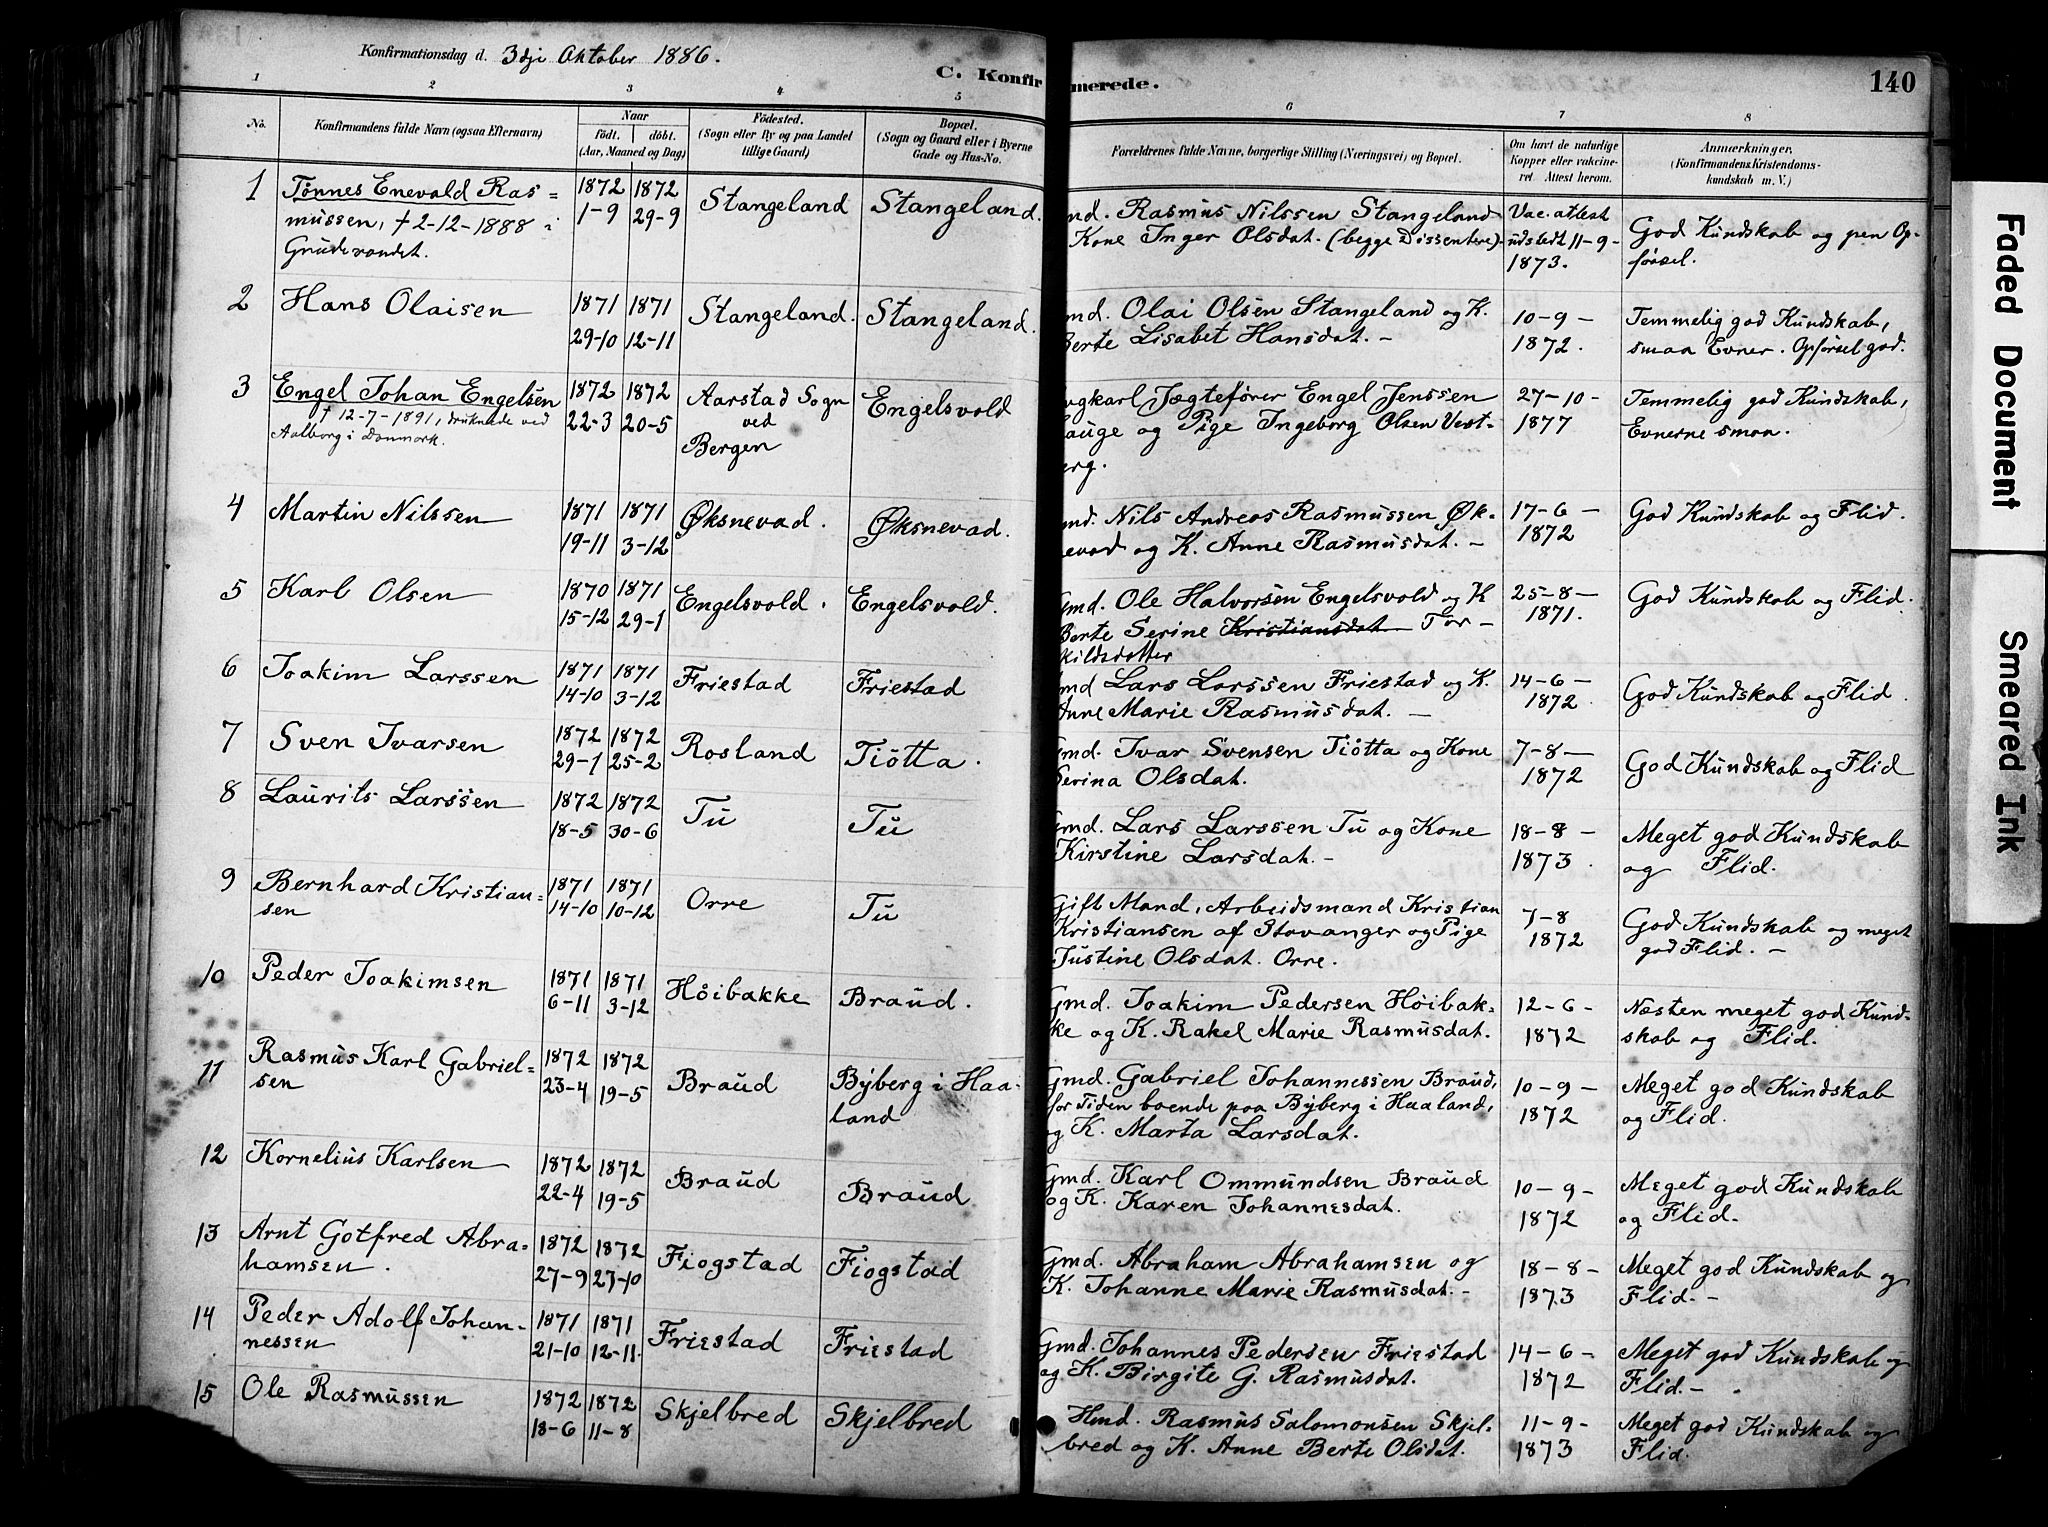 Konfirmationsdag d. 3dje Oktober 1886.
C. Konfirmerede.
140
1 2 3 4 5 6 7 8
No.
Konfirmandens fulde Navn (ogsaa Efternavn)
Naar
födt. döbt.
(Aar, Maaned og Dag)
Födested.
(Sogn eller By og paa Landet
tillige Gaard)
Bopæl.
(Sogn og Gaard eller i Byerne
Gade og Hus-No.
Forældrenes fulde Navne, borgerlige Stilling (Næringsvei) og Bopæl.
Om havt de naturlige
Kopper eller vakcine-
ret. Attest herom.
Anmærkninger.
(Konfirmandens Kristendoms-
kundskab m. V.)
1 Tønnes Enevald Ras- 1872 1872 Stangeland Stangeland. md. Rasmus Nilssen Stangeland Vac. attest God Kundskab og pen Op-
mussen, † 2-12-1888 i 1-9 29-9 Kone Inger Olsdat. (begge Dissentere). udstedt 11-9- førsel.
Grudevandet. 1873.
2 Hans Olaisen 1871 1871 Stangeland. Stangeland. md. Olai Olsen Stangeland og K. 10-9- Temmelig god Kundskab,
29-10 12-11 Berte Lisabet Hansdat. - 1872. smaa Evner. Opførsel god.
3 Engel Johan Engelsen 1872 1872 Aarstad Sogn Engelsvold gkarl Jægtefører Engel Jenssen 27-10- Temmelig god Kundskab,
† 12-7-1891, druknede ved 22-3 20-5 ved Hauge og Pige Ingeborg Olsen Vest- 1877 Evnerne smaa.
Aalborg i Danmark. Bergen berg.
4 Martin Nilssen 1871 1871 Øksnevad. Øksnevad. md. Nils Andreas Rasmussen Øk- 17-6- God Kundskab og Flid.
19-11 3-12 nevad og K. Anne Rasmusdat. - 1872
5 Karl Olsen 1870 1871 Engelsvold. Engelsvold. Gmd. Ole Halvorsen Engelsvold og K 25-8- God Kundskab og Flid.
15-12 29-1 Berte Serine Kristiansdat Tor- 1871.
kildsdatter
6 Joakim Larssen 1871 1871 Friestad Friestad Gmd Lars Larssen Friestad og K. 14-6- God Kundskab og Flid.
14-10 3-12 Anne Marie Rasmusdat. - 1872.
7 Sven Ivarsen 1872 1872 Rosland Tiötta. Gmd. Ivar Svensen Tiötta og Kone 7-8- God Kundskab og Flid
29-1 25-2 Serina Olsdat. 1872
8 Laurits Larssen 1872 1872 Tu Tu Gmd. Lars Larssen Tu og Kone 18-8- Meget god Kundskab
18-5 30-6 Kirstine Larsdat. - 1873. og Flid.
9 Bernhard Kristian- 1871 1871 Orre Tu Gift Mand, Arbeidsmand Kristian 7-8 God Kundskab og meget
sen 14-10 10-12 Kristiansen af Stavanger og Pige 1872 god Flid. -
Justine Olsdat. Orre.
10 Peder Joakimsen 1871 1871 Höibakke Braud. Gmd. Joakim Pedersen Höibak- 12-6- Næsten meget god Kund-
6-11 3-12 ke og K. Rakel Marie Rasmusdat. 1872 skab og Flid.
11 Rasmus Karl Gabriel- 1872 1872 Braud Byberg i Haa- Gmd. Gabriel Johannessen Braud, 10-9- Meget god Kundskab
sen 23-4 19-5 land for Tiden boende paa Byberg i Haaland, 1872 og Flid.
og K. Marta Larsdat.
12 Kornelius Karlsen 1872 1872 Braud Braud Gmd. Karl Ommundsen Braud 10-9- Meget god Kundskab
22-4 19-5 og K. Karen Johannesdat. 1872 og Flid.
13 Arnt Gotfred Abra- 1872 1872 Fiogstad Fiogstad Gmd. Abraham Abrahamsen og 18-8- Meget god Kundskab og
hamsen. 27-9 27-10 K. Johanne Marie Rasmusdat. - 1873 Flid. -
14 Peder Adolf Johan- 1871 1871 Friestad Friestad Gmd. Johannes Pedersen Friestad 14-6- Meget god Kundskab og
nessen 21-10 12-11. og K. Birgite G. Rasmusdat. 1872 Flid. -
15 Ole Rasmussen 1872 1872 Skjelbred Skjelbred Hmd. Rasmus Salomonsen Skjel- 11-9- Meget god Kundskab og
18-6 11-8 bred og K. Anne Berte Olsdat. 1873 Flid.
Faded Document
Smeared Ink